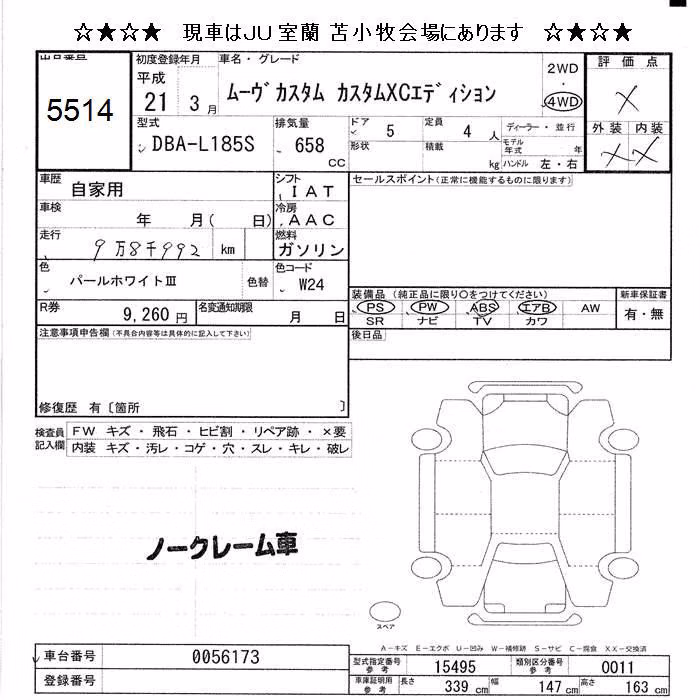 ☆★☆★ 現車はJU室蘭 苫小牧会場にあります ☆★☆★
出品番号
5514
初度登録年月
平成
21 3月
車名・グレード
ムーヴ カスタム カスタムXCエディション
2WD
・
4WD
評価点
X
外装 内装
X X
型式
DBA-L185S
排気量
658
CC
ドア 5
定員 4 人
ディーラー・並行
形状
積載
kg
モデル年式
年
ハンドル 左・右
車歴
自家用
シフト
IAT
車検
年 月( 日)
冷房
AAC
走行
9万8千992 km
燃料
ガソリン
色
パールホワイトIII
色替
色コード
W24
R券
9,260円
名変通知期限
月 日
セールスポイント(正常に機能するものに限ります)
装備品(純正品に限り○をつけてください)
PS PW ABS エアB AW
SR ナビ TV カワ
新車保証書
有・無
後日品
注意事項申告欄(不具合内容等は具体的に記入して下さい)
修復歴 有〔箇所 〕
検査員記入欄
FW キズ・飛石・ヒビ割・リペア跡・×要
内装 キズ・汚レ・コゲ・穴・スレ・キレ・破レ
ノークレーム車
スペア
A-キズ E-エクボ U-凹み W-補修跡 S-サビ C-腐食 XX-交換済
車台番号 0056173
登録番号
型式指定番号参考 15495
類別区分番号参考 0011
車庫証明用参考
長さ 339 cm
幅 147 cm
高さ 163 cm